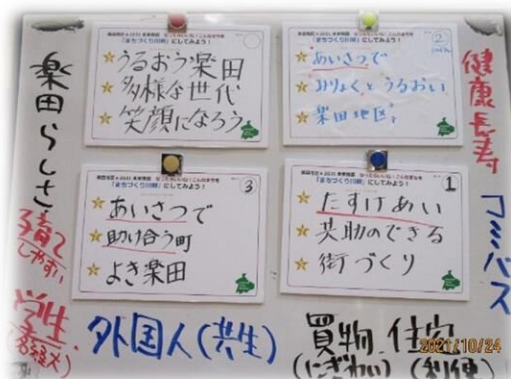 楽田らしさ
子育て
しやすい
学生
「まちづくり川柳」にしてみよう！
うるおう楽田
多様な世代
笑顔になろう
「まちづくり川柳」にしてみよう！
2
あいさつで
みりょくとうるおい
楽田地区
「まちづくり川柳」にしてみよう！
3
あいさつで
助け合う町
よき楽田
「まちづくり川柳」にしてみよう！
1
たすけあい
共助のできる
街づくり
健康長寿
コミバス
外国人(共生)
買物 住宅
(にぎわい) (利便)
2021/10/24